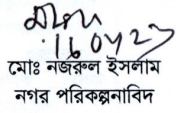 16.04.23
মোঃ নজরুল ইসলাম
নগর পরিকল্পনাবিদ